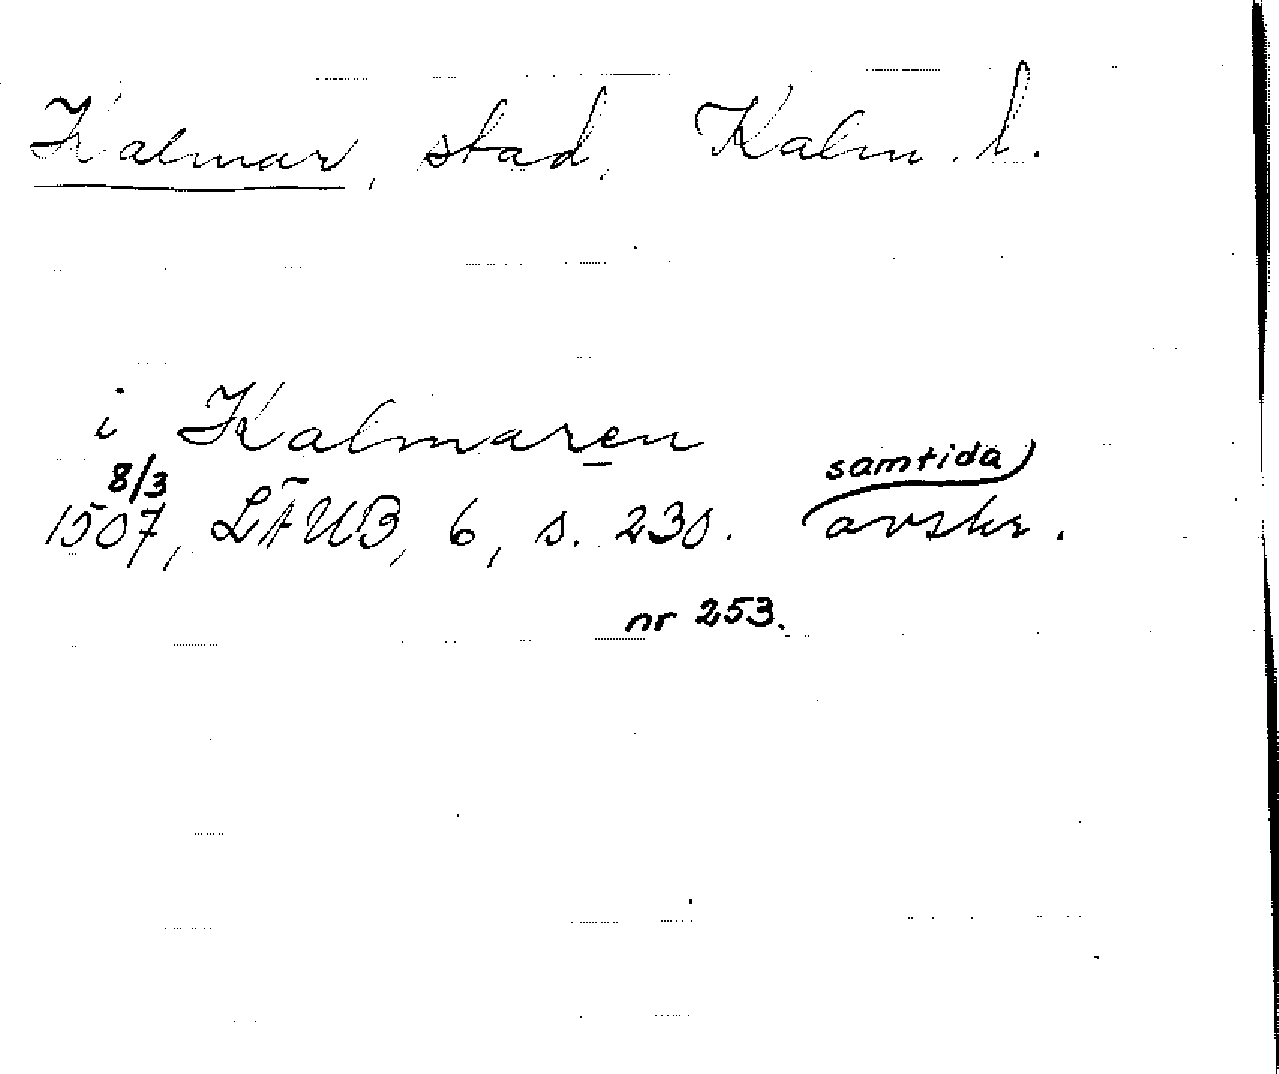 Kalmar, stad, Kalm. l.
i Kalmaren
8/3 samtida
1507, LÄUB, 6, s. 230. avskr.
nr 253.